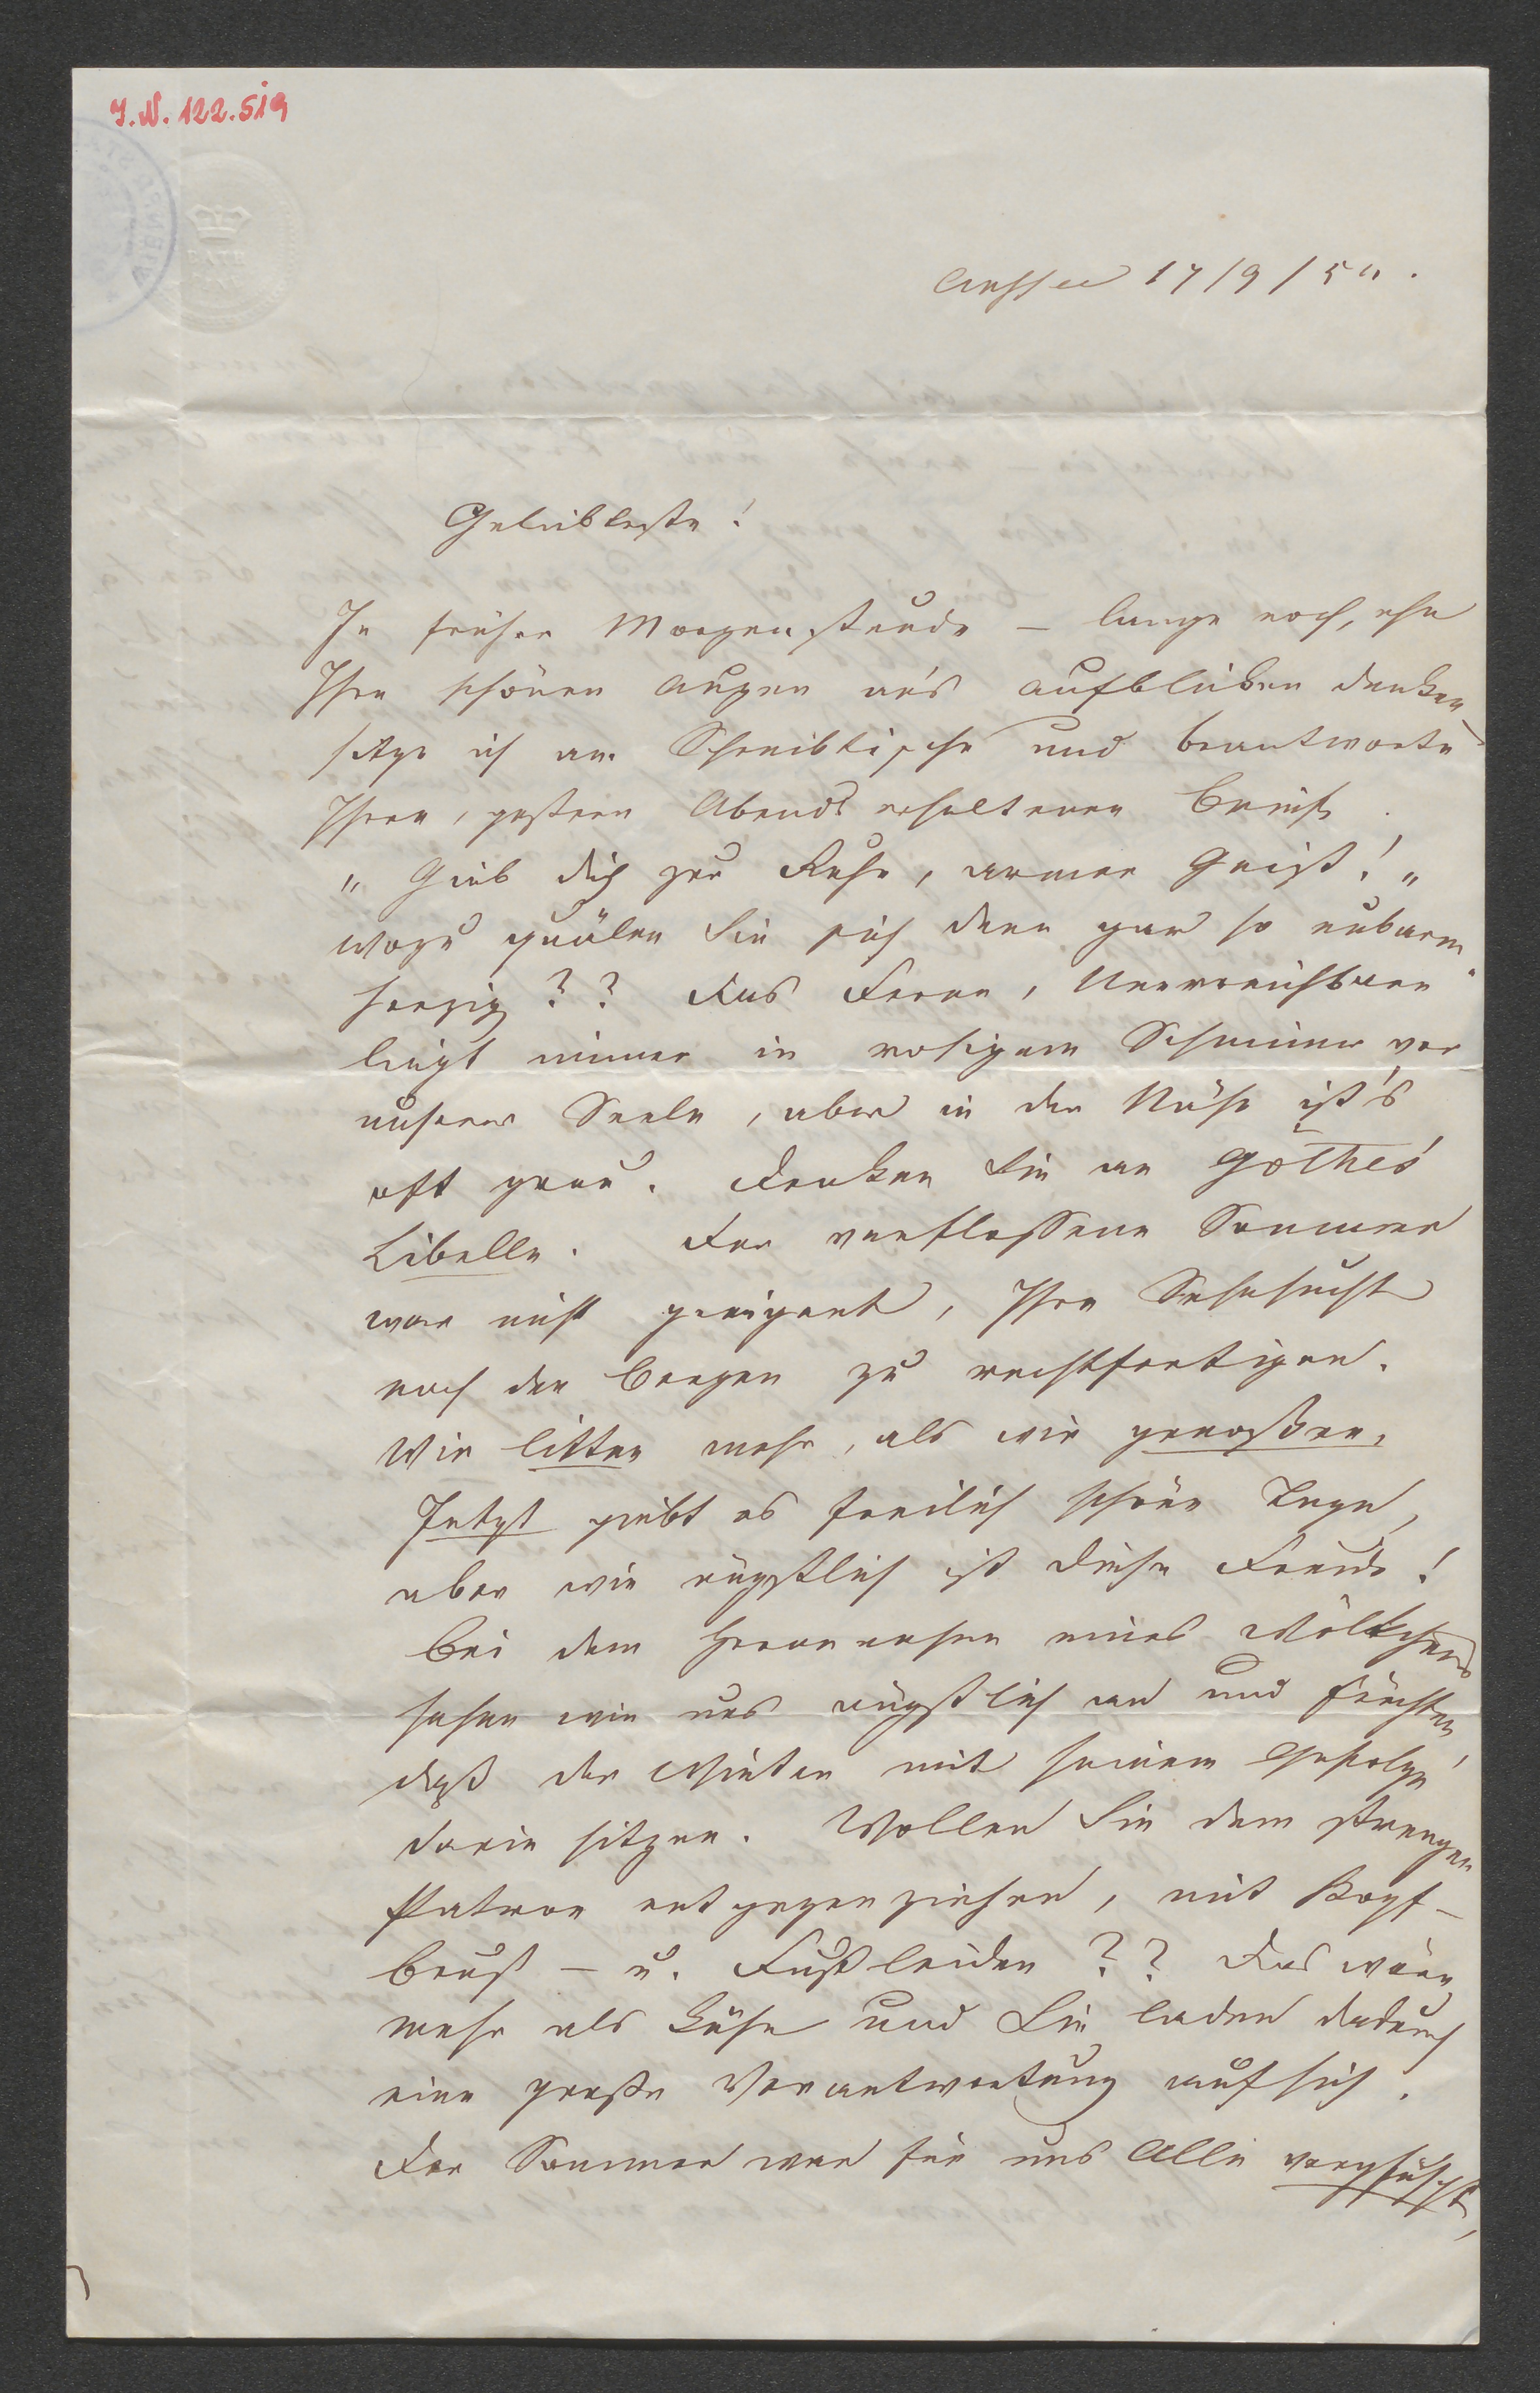 I.N. 122.519
WIEN
Aussee 17/9/54.
Geliebteste!
In früher Morgenstunde – lange noch, ehe
Ihre schönen Augen an's Aufblicken denken
sitze ich am Schreibtische und beantworte
Ihren, gestern Abends erhaltenen Brief.
"Gieb dich zur Ruhe, armer Geist!"
wozu quälen Sie sich denn gar so unbarm-
herzig?? Das Ferne, Unerreichbare
liegt immer in rosigem Schimmer vor
unserer Seele, aber in der Nähe ist's
oft grau. Denken Sie an Göthes'
Libelle. Der verflossene Sommer
war nicht geeignet, Ihre Sehnsucht
nach den Bergen zu rechtfertigen.
Wir litten mehr, als wir genoßen.
Jetzt giebt es freilich schöne Tage,
aber wie ängstlich ist diese Freude!
Bei dem Herannahen eines Wölkchens
sehen wir uns ängstlich an und fürchten,
daß der Winter mit seinem Gefolge
darin sitzen. Wollen Sie dem strengen
Patron entgegenziehen, mit Kopf-
Brust – u. Fußleiden?? Das wäre
mehr als kühn und Sie laden dadurch
eine große Verantwortung auf sich.
Der Sommer war für uns Alle verpfuscht,